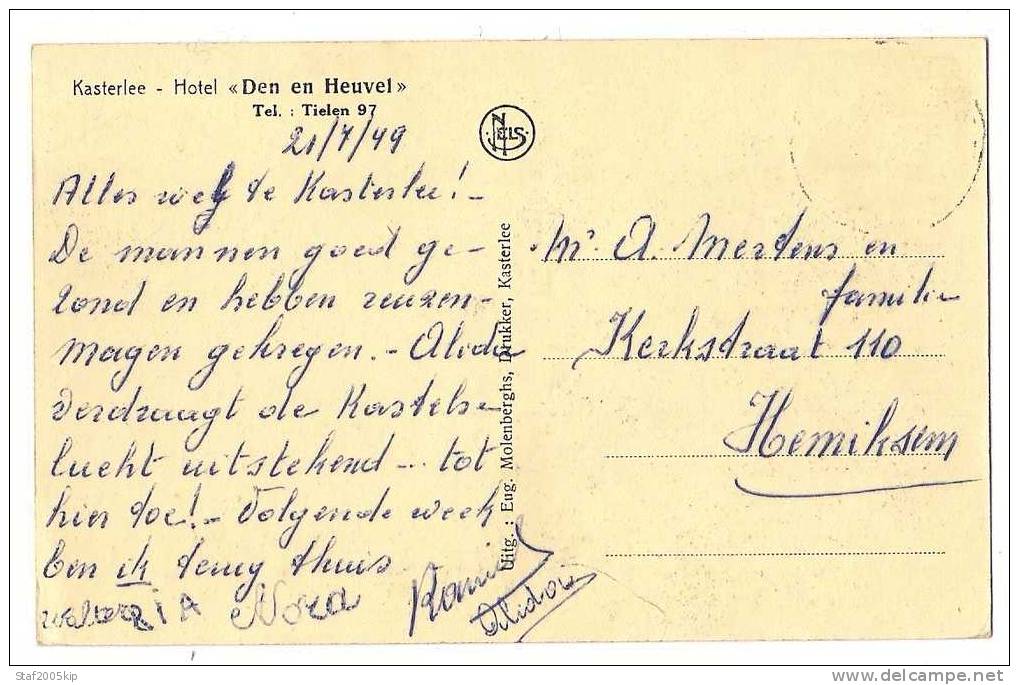 Kasterlee - Hotel «Den en Heuvel»
Tel. : Tielen 97
21/7/49
NELS
Alles wel te Kasterlee! -
De mannen goed ge-
zond en hebben reuzen-
magen gekregen. - Alida
verdraagt de Kastelse
lucht uitstekend -... tot
hier toe! - Volgende week
ben ik terug thuis
Walter RIA Nora
Alida
Uitg. : Eug. Molenberghs, Drukker, Kasterlee
Mr. A. Mertens en
familie
Kerkstraat 110
Hemiksem
Staf2005kip
delcampe.net